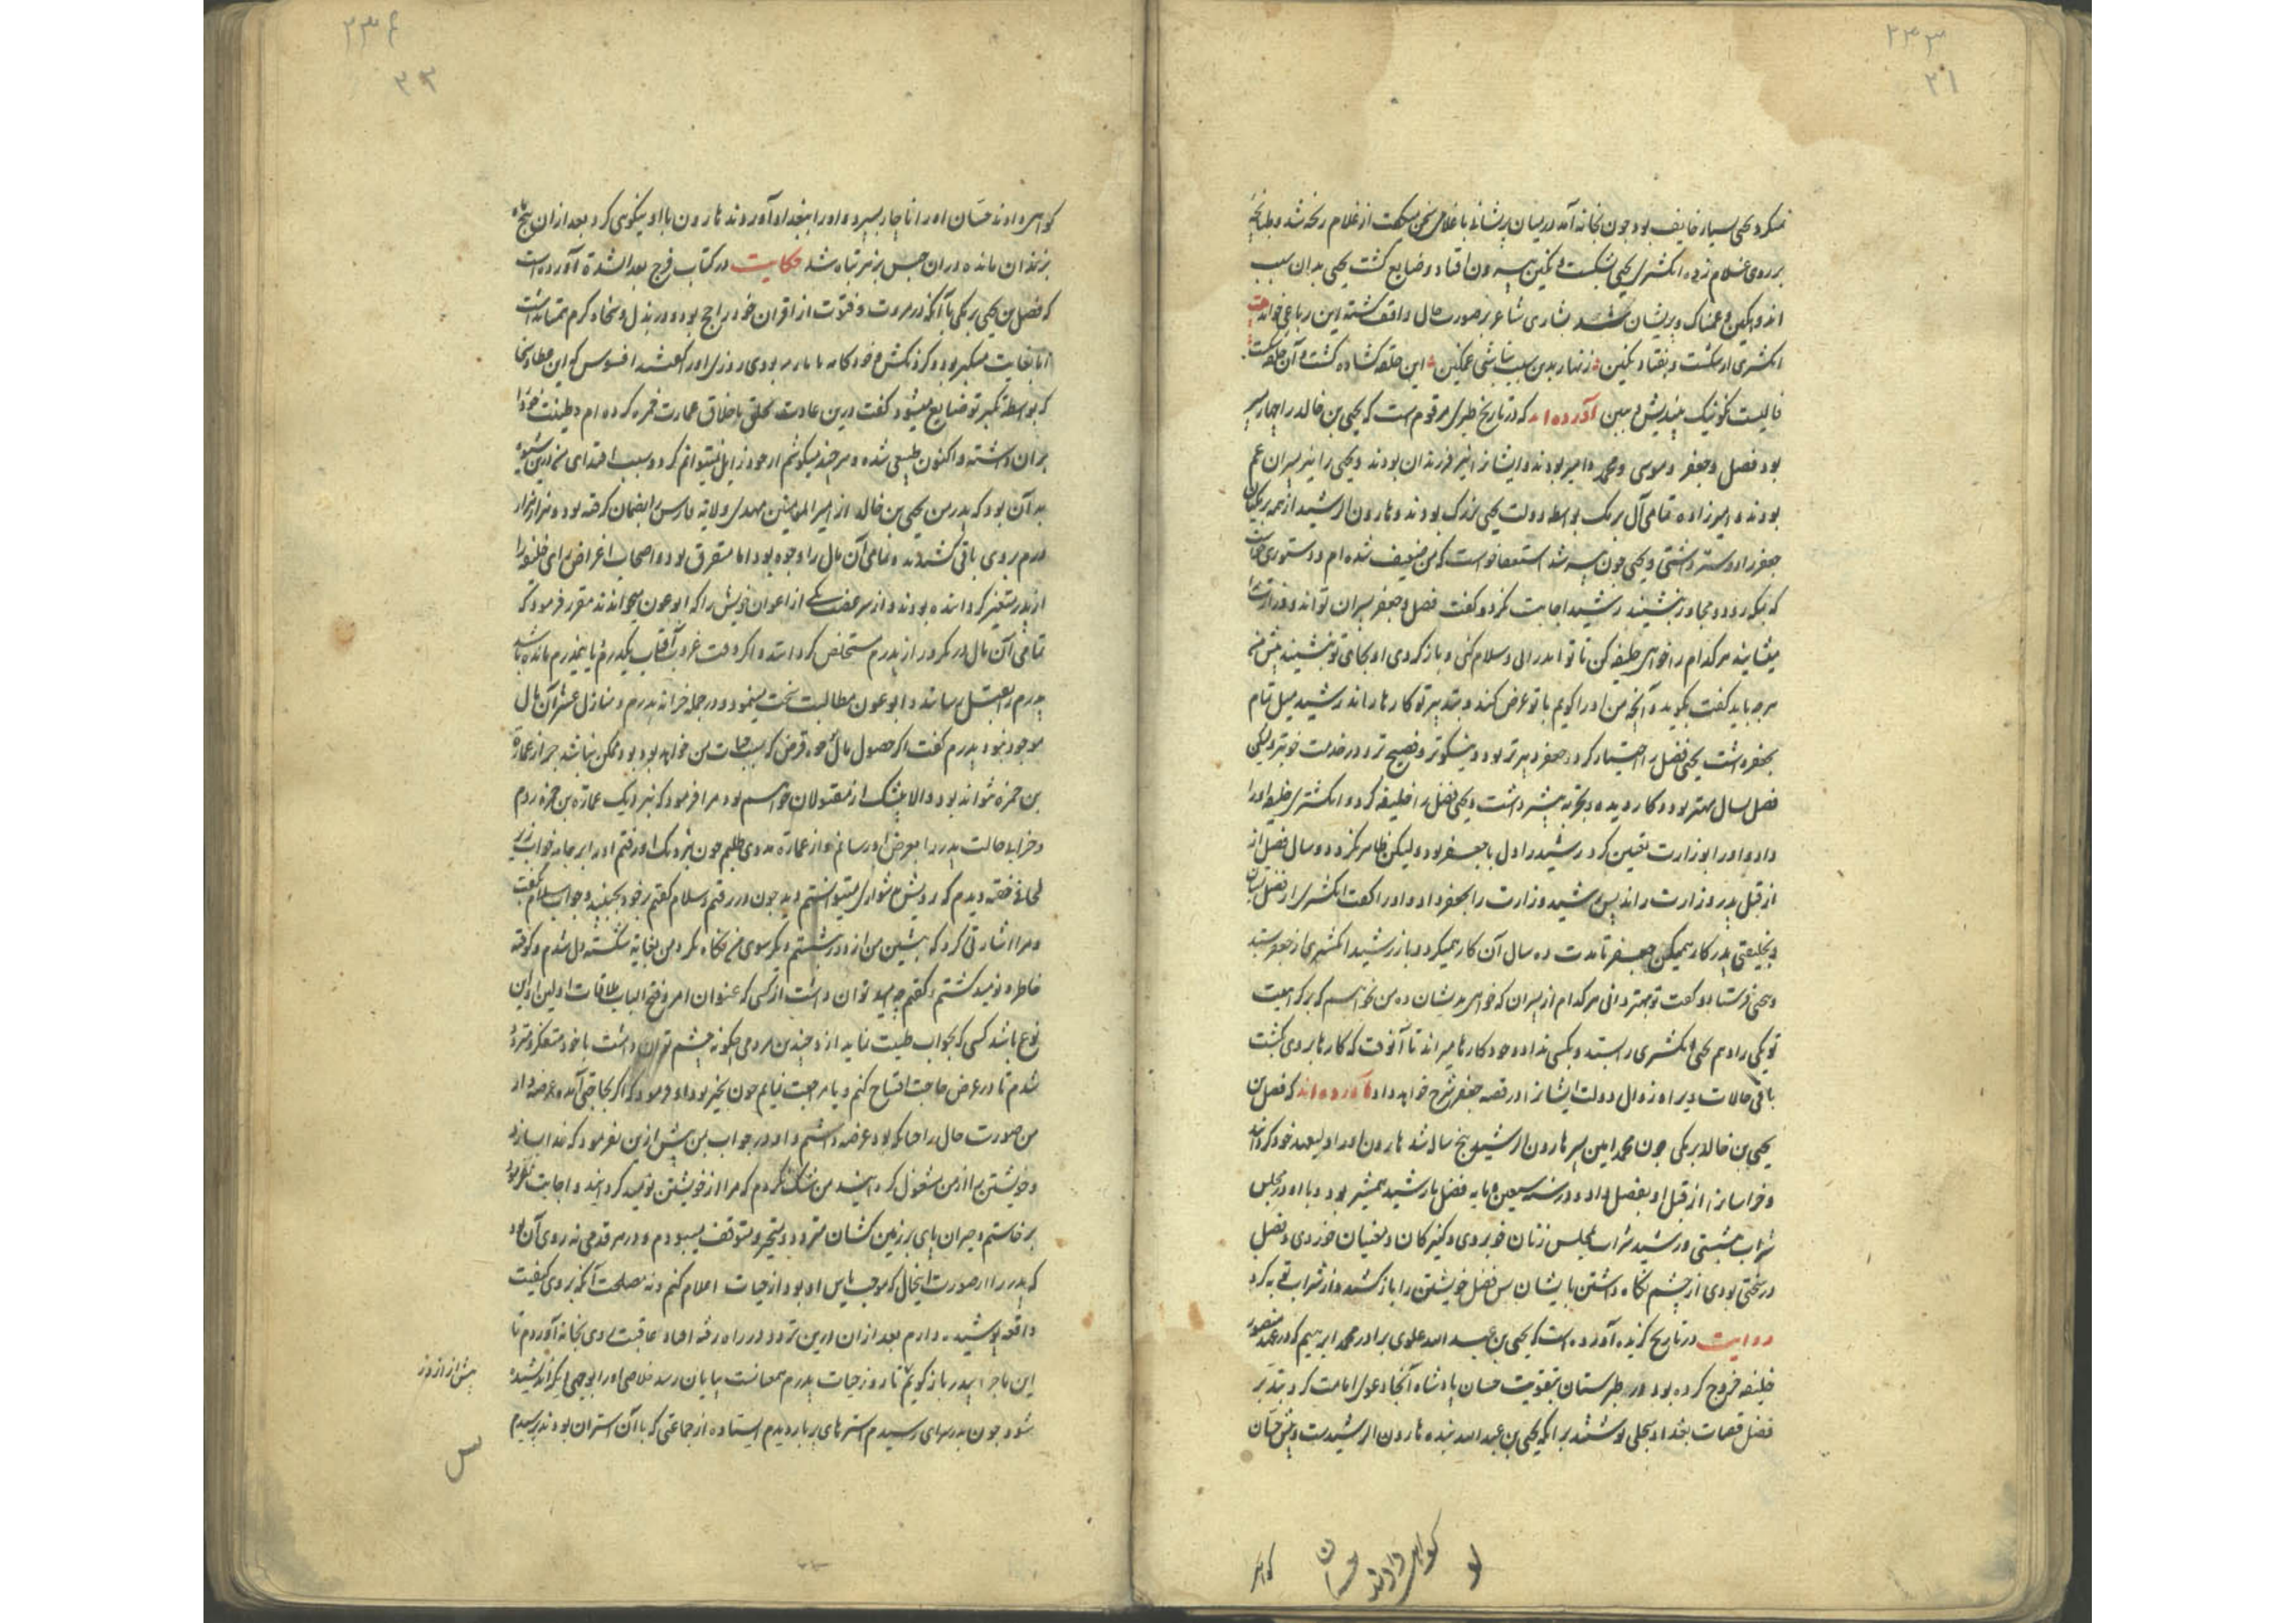 ۲۳۳
۲۱
میکرد و یحیی بسیار خایف بود چون بخانه آمد در میان پریشانی با غلامی سخن میگفت از غلام رنجه شد و طپانچهٔ
بر روی غلام زد انکشتری یحیی بشکست و نکین بیرون افتاد و ضایع کشت یحیی بدان سبب
اندوهکین و غمناک و پریشان شد شاعر بر صورت حال واقف کشته این رباعی خواند
انکشتری ار شکست و بفتاد نکین زنهار بدین سبب نباشی غمکین این حلقه کشاده کشت و آن حلقه شکست
فالیست نکو نیک بیندیش و ببین آورده‌اند که در تاریخ طبری مرقوم است که یحیی بن خالد را چهار پسر
بود فضل و جعفر و موسی و محمد و امیر بودند و ایشانرا نیز فرزندان بودند و یحیی را نیز پسران عم
بودند و امیرزاده تمامی آل برمک بواسطه دولت یحیی بزرک بودند و هارون الرشید از همه برمکیان
جعفر را دوستر داشتی و یحیی چون پیر شد استعفا خواست که من ضعیف شده‌ام و دستوری خواست
که بمکه رود و مجاور بنشیند رشید اجابت نکرد و کفت فضل و جعفر پسران تواند و وزارت را
میشایند هر کدام را خواهی خلیفه کن تا تو اندر آئی و سلام کنی و باز کردی او بجای تو بنشیند پیش من
هر چه باید کفت بکوید و آنچه من او را کویم با تو عرض کند و بتدبیر تو کارها راند رشید میل تمام
بجعفر داشت یحیی فضل را اختیار کرد و جعفر دبیرتر بود و نیکوتر و فصیح‌تر و در خدمت خوبتر ولیکن
فضل بسال مهتر بود و کار دیده و تجربه بیشتر داشت و یحیی فضل را خلیفه کرد و انکشتری خلیفه او را
داد و او را بوزارت تعیین کرد رشید را دل با جعفر بود و لیکن ظاهر نکرد و دو سال فضل از
از قبل پدر وزارت راند پس رشید وزارت را بجعفر داد و او را کفت انکشتری از فضل بستان
و بخلیفتی پدر کار همیکن جعفر تا مدت ده سال آن کار همیکرد و باز رشید انکشتری از جعفر بستد
و بیحیی فرستاد و کفت تو بهتر دانی هر کدام از پسران که خواهی بدیشان ده من نخواهم که برکه اهلیت
توئی راد هم یحیی انکشتری را بستد و بکسی نداد و خود کارها میراند تا آنوقت که کارها بر وی بکشت
باقی حالات دیر او زوال دولت ایشانرا در قصه جعفر شرح خواهد داد آورده‌اند که فضل بن
یحیی بن خالد برمکی چون محمد امین پسر هارون الرشید پنج سال شد هارون او را ولیعهد خود کردانید
و خراسانرا از قبل او بفضل داد و در سنه سبعین و مایه فضل با رشید همشیر بود و با او در مجلس
شراب نشستی و رشید شراب بمجلس زنان خوبروی و کنیزکان و مغنیان خوردی و فضل
در سختی بودی از چشم نکاه داشتن با یشان پس فضل خویشتن را باز کشید و از شراب توبه کرد
روایت در تاریخ کزیده آورده است که یحیی بن عبد الله علوی برادر محمد ابراهیم که در عهد منصور
خلیفه خروج کرده بود در طبرستان بتقویت حسان پادشاه آنجا دعوی امامت کرد بتدبیر
فضل قضات بغداد سجلی نوشتند بر آنکه یحیی بن عبد الله بنده هارون الرشید ست و پیش حسان
کواهی
کواهی دادند حسان
۲۳۴
۳۲
کواهی دادند حسان او را ناچار بسپرد و او را ببغداد آوردند هارون با او نیکویی کرد بعد از آن پنج ماه
بزندان مانده در آن حبس بزهر تباه شد حکایت در کتاب فرج بعد الشدة آورده است
که فضل بن یحیی برمکی با آنکه در مروت و فتوت از اقران خود راجح بود و در بذل و سخا و کرم همتا نداشت
اما بغایت متکبر بود و کردنکش و خودکامه بودی روزی او را کفتند افسوس که این عطا و سخا
که بواسطه تکبر تو ضایع میشود کفت درین عادت تخلق باخلاق عمارت حمزه کرده‌ام و طینت خود را
بران داشته و اکنون طبیعی شده و هر چند میکوشم از خود زایل نمیتوانم کرد و سبب اقتدای من درین شیوه
بدان بود که پدر من یحیی بن خالد از امیر المؤمنین مهدی ولایه فارس را بضمان کرفته بود و هزار هزار
درم بر وی باقی کشیدند و تمامی آن مال را وجوه بود اما متفرق بود و اصحاب اغراض رای خلیفه را
از پدرم متغیر کردانیده بودند و از سر غضب یکی از اعوان خویش را که ابو عون میخواندند مقرر فرمود که
تمامی آن مال در یکروز از پدرم مستخلص کرداند و اکر وقت غروب آفتاب یکدرم یا نیمدرم مانده باشد
پدرم را بقتل رساند و ابو عون مطالبت سخت مینمود و در جمله خزانه پدرم و منازل عشر آن مال
موجود نبود پدرم کفت اکر حصول مال وجه قرض که سبب حیات من خواهد بود بود ممکن نباشد جز از عمارة
بن حمزه نتواند بود و الا بیشک از مقتولان خواهم بود مرا فرمود که نزدیک عمارة بن حمزه روم
و خرابی حالت پدر را بعرض او رسانم و از عمارة مددی طلبم چون بنزدیک او رفتم او را بر جامه خواب زیر
لحافی خفته دیدم که رویش بدشواری میتوانستم دید چون در رفتم و سلام کفتم بر خود نجنبید و جواب سلام نکفت
و مرا اشارتی کرد که بنشین من از دور نشستم و دیکر سوی من نکاه نکرد من بغایة شکسته دل شدم و کوفته
خاطر و نومید کشتم و کفتم چه امید توان داشت از کسی که عنوان امر و فتح الباب ملاقات اولین او این
نوع باشد کسی که بجواب طیبت ننماید از و چندین مردمی چکونه چشم توان داشت با خود متفکر و متردد
شدم تا در عرض حاجت افتتاح کنم و یا مراجعت نمایم چون بخیز بود او فرمود که اکر بحاجتی آمده عرضه دار
من صورت حال را چنانکه بود عرضه داشتم و او در جواب من بیش ازین نفرمود که خدا بسازد
و خویشتن را از من مشغول کردانید من شک نکردم که مرا از خویشتن نومید کردانید و اجابت نفرمود
برخاستم و حیران پای بر زمین کشان متردد و متحیر و متوقف میبودم و در هر قدمی نه روی آن بود
که پدر را از صورت اینحال که موجب یاس او بود از حیات اعلام کنم و نه مصلحت آنکه بر وی کیفیت
واقعه پوشیده دارم بعد از آن درین تردد در راه رفته افتاد عاقبت روی بخانه آوردم تا
این ماجرا با پدر باز کویم تا روز حیات پدرم بپایان رسد خلاصی او را بوجهی دیکر اندیشیده
شود چون بدر سرای رسیدم استرهای پر بار دیدم ایستاده از جماعتی که با آن استران بودند پرسیدم
پیش از آن روز